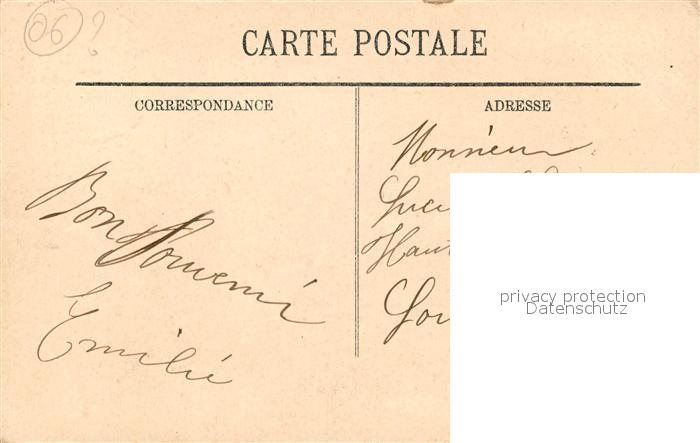 06 ?
CARTE POSTALE
CORRESPONDANCE
ADRESSE
Bon Souvenir
Emilie
Monsieur
Haut
privacy protection
Datenschutz